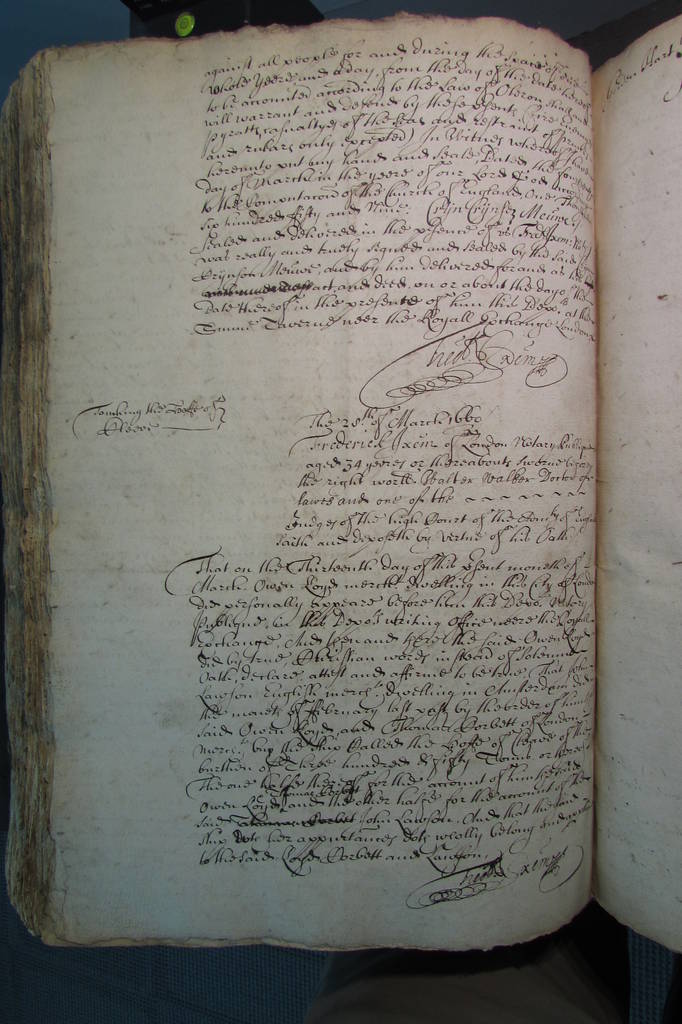 against all people for and during the space of one
whole yeere and a day, from the day of the date hereof
to be accounted according to the Law of Oleron th
will warrant and defend by these psents (fire enemy
pyratts casualtyes of the Seas and restraint of princes
and rulers only excepted) In Witnes whereof I have
hereunto put my hand and Seale Dated the
day of March in the yeere of our Lord God
to the Computacon of the Church of England, One Thousand
six hundred fifty and Nine. Crijn Crijnsz Meiuwe
Sealed and delivered in the psence of us Fred: Ixem: Not
was really and truely signed and sealed by the said
Crynsen Meiuwe, and by him delivered for and as his
act and deed, on or about the day of the
date thereof in the presence of him this Depot. at the
Taverne neer the Royall Exchange London
Fred: Ixem
Touching the Loffe of
Cleave
The 28th. of March 1660
Frederick Ixem of London Notary Publique
aged 34 yeeres or thereabouts sworne before
the right worll. Walter Walker Doctor of
lawes and one of the
Judges of the high Court of the Admlty of England
saith and deposeth by vertue of his Oath
That on the Thirteenth day of this psent moneth of
March Owen Loyd mercht dwelling in this City of London
did personally appeare before him this Depot. Notary
Publique, in this Depots writing Office neere the Royall
Exchange, And then and there the said Owen Loyd
did by true Christian words in stead of solemne
Oath, declare, attest and affirme to be true, That John
Lawson English mercht. dwelling in Amsterdam did
the moneth of February last past by the order of him
said Owen Loyd, and Thomas Corbett of London
mercht. buy the ship called the Loffe of Cleave of the
burthen of Three hundred & fifty Tonns or thereabts
The one halfe thereof for the account of him the said
Owen Loyd, and the other halfe for the account of the
said Thomas Corbett John Lawson, And that the said
ship wth her appurtances doth wholly belong and
to the said Loyd Corbett and Lawson,
Fred: Ixem